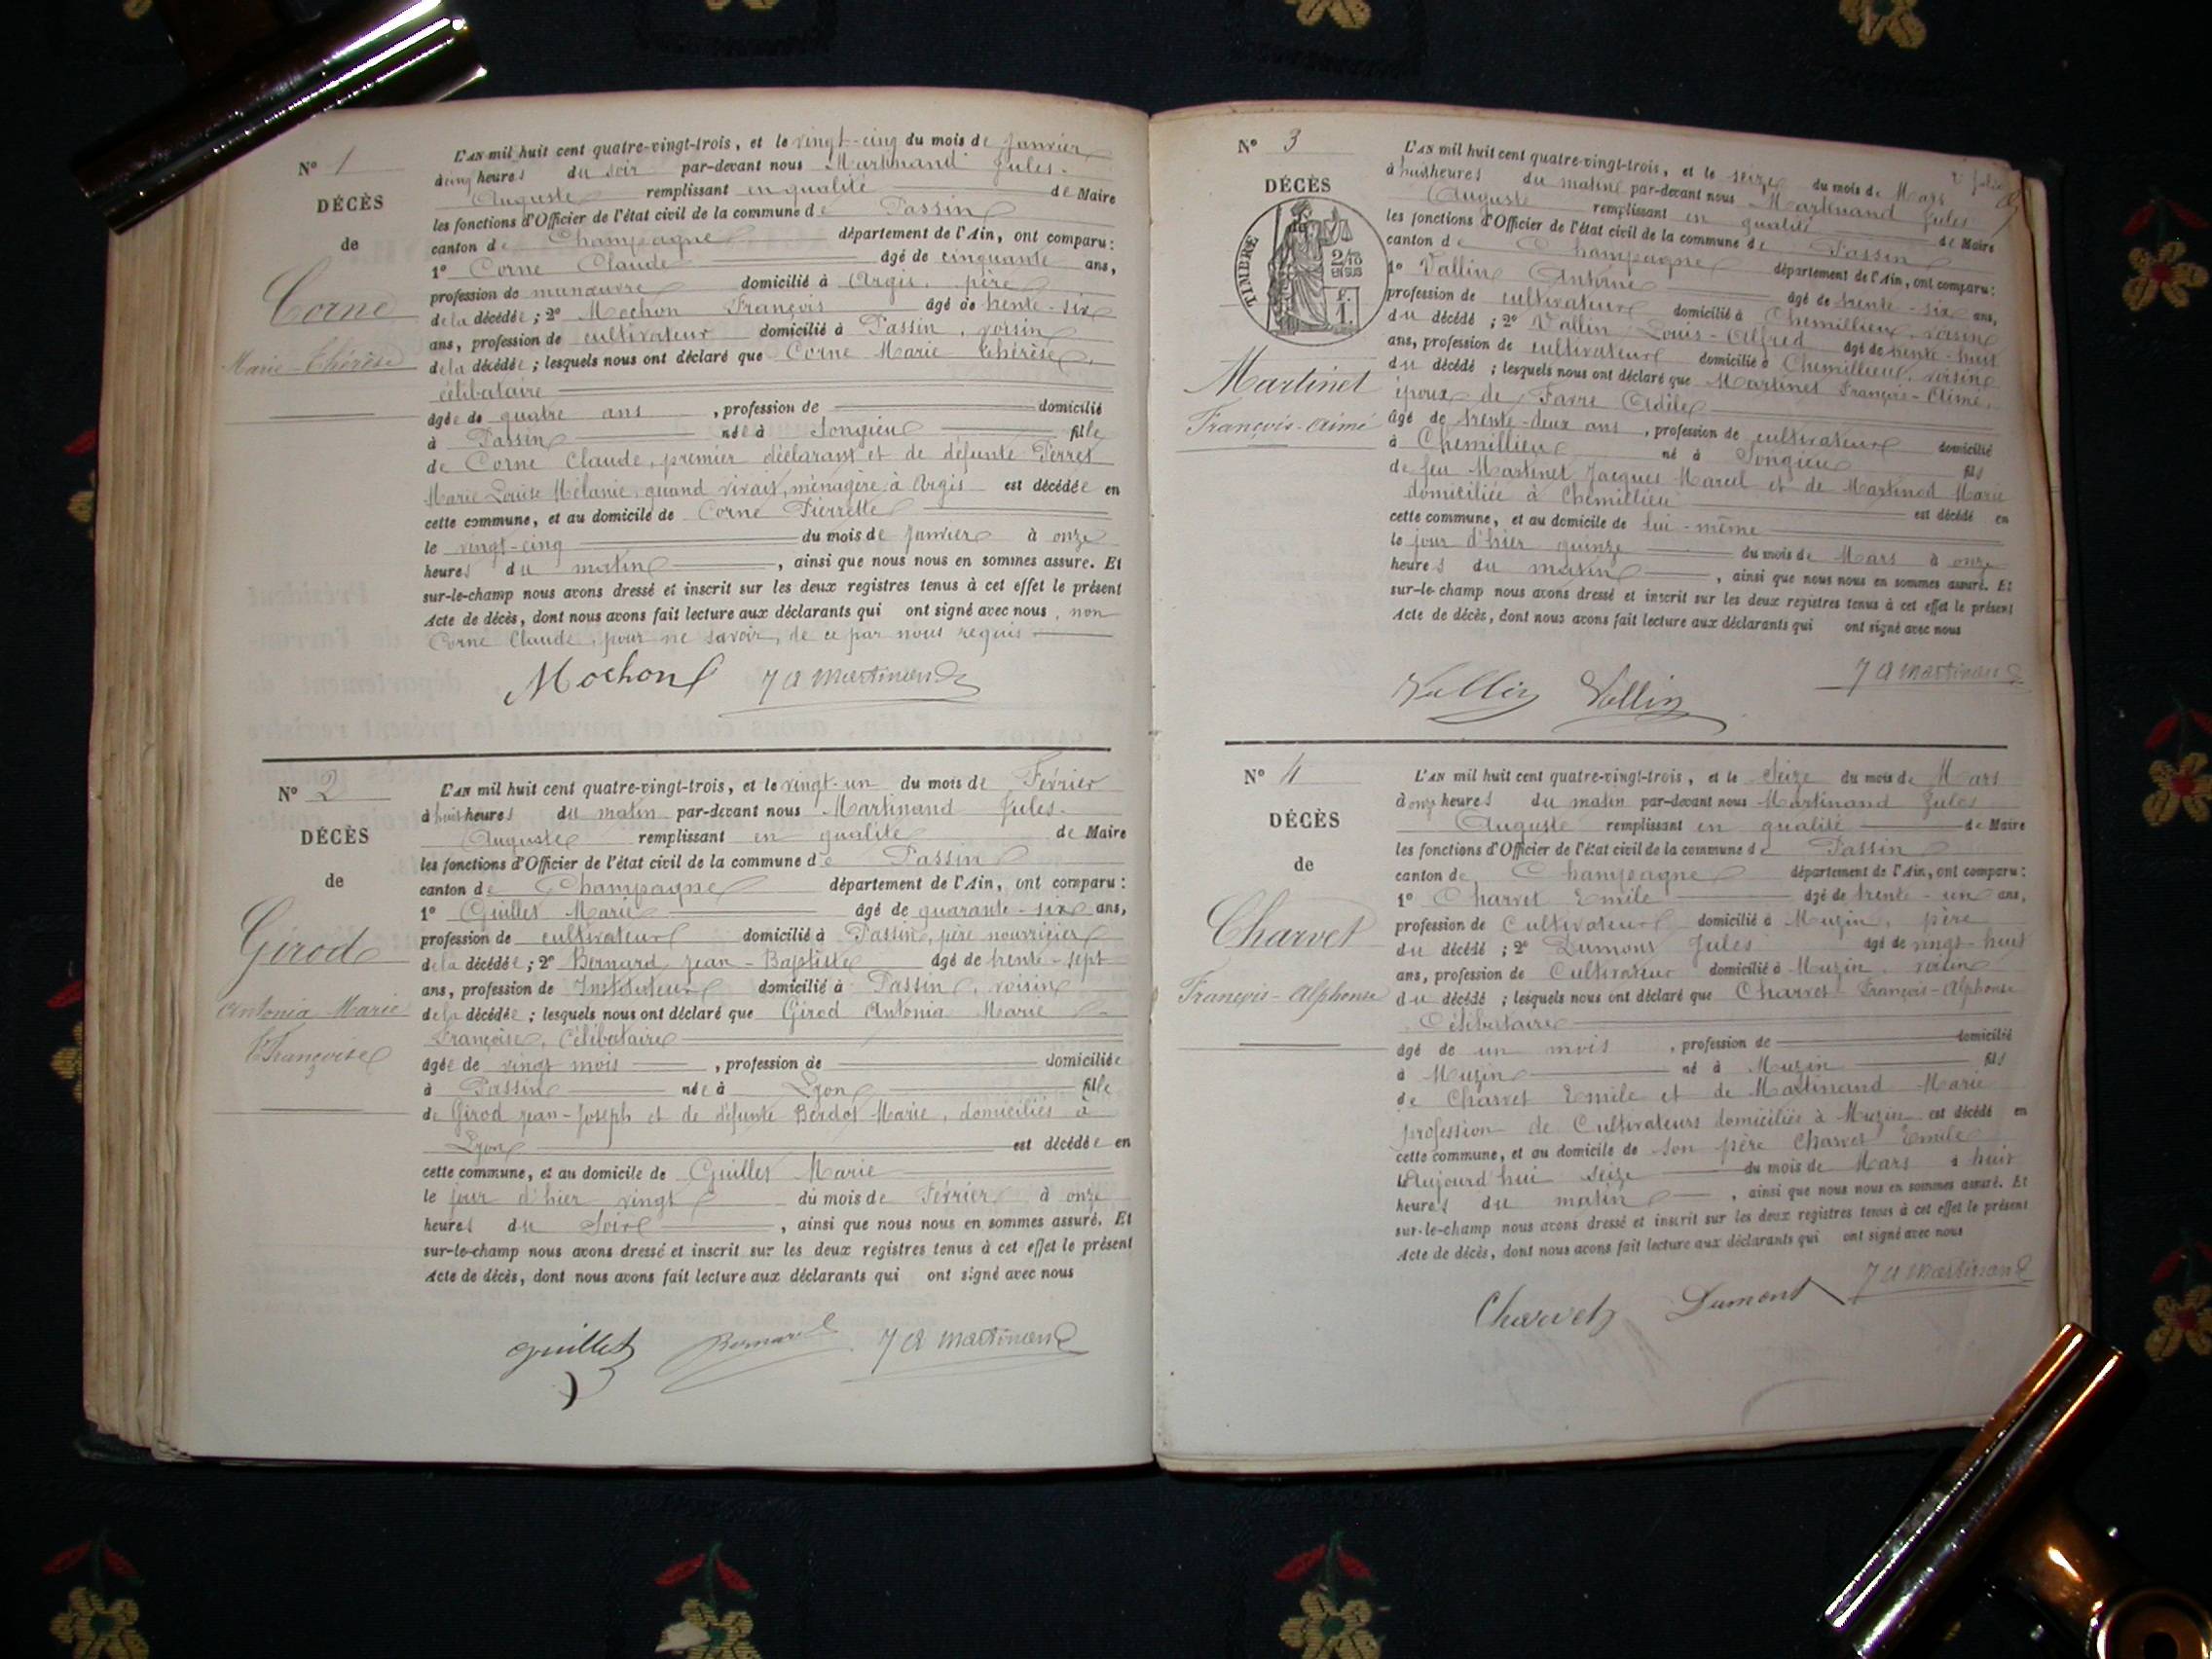 N° 1
DÉCÈS
de
Corne
Marie-Thérèse
L'AN mil huit cent quatre-vingt-trois, et le vingt-cinq du mois de Janvier
à cinq heures du soir par-devant nous Martinand Jules-
Auguste remplissant en qualité de Maire
les fonctions d'Officier de l'état civil de la commune de Passin
canton de Champagne département de l'Ain, ont comparu :
1° Corne Claude âgé de cinquante ans,
profession de manœuvre domicilié à Argis, père
de la décédée ; 2° Mochon François âgé de trente-six
ans, profession de cultivateur domicilié à Passin, voisin
de la décédée ; lesquels nous ont déclaré que Corne Marie Thérèse,
célibataire
âgée de quatre ans, profession de domicilié
à Passin née à Songieu fille
de Corne Claude, premier déclarant et de défunte Perret
Marie Louise Mélanie, quand vivait, ménagère à Argis est décédée en
cette commune, et au domicile de Corne Pierrette
le vingt-cinq du mois de Janvier à onze
heures du matin, ainsi que nous nous en sommes assuré. Et
sur-le-champ nous avons dressé et inscrit sur les deux registres tenus à cet effet le présent
Acte de décès, dont nous avons fait lecture aux déclarants qui ont signé avec nous, non
Corne Claude, pour ne savoir, de ce par nous requis
Mochon J A Martinand
N° 2
DÉCÈS
de
Girod
Antonia Marie
Françoise
L'AN mil huit cent quatre-vingt-trois, et le vingt-un du mois de Février
à huit heures du matin par-devant nous Martinand Jules-
Auguste remplissant en qualité de Maire
les fonctions d'Officier de l'état civil de la commune de Passin
canton de Champagne département de l'Ain, ont comparu :
1° Guillet Marie âgé de quarante-six ans,
profession de cultivateur domicilié à Passin, père nourricier
de la décédée ; 2° Bernard Jean-Baptiste âgé de trente-sept
ans, profession de Instituteur domicilié à Passin, voisin
de la décédée ; lesquels nous ont déclaré que Girod Antonia Marie
Françoise, Célibataire
âgée de vingt mois, profession de domiciliée
à Passin née à Lyon fille
de Girod Jean-Joseph et de défunte Berdot Marie, domiciliés à
Lyon est décédée en
cette commune, et au domicile de Guillet Marie
le jour d'hier vingt du mois de Février à onze
heures du Soir, ainsi que nous nous en sommes assuré. Et
sur-le-champ nous avons dressé et inscrit sur les deux registres tenus à cet effet le présent
Acte de décès, dont nous avons fait lecture aux déclarants qui ont signé avec nous
Guillet Bernard J A Martinand
N° 3
DÉCÈS
TIMBRE
Martinet
François-Aimé
L'AN mil huit cent quatre-vingt-trois, et le seize du mois de Mars
à huit heures du matin par-devant nous Martinand Jules
Auguste remplissant en qualité de Maire
les fonctions d'Officier de l'état civil de la commune de Passin
canton de Champagne département de l'Ain, ont comparu :
1° Vallin Antoine âgé de trente-six ans,
profession de cultivateur domicilié à Chemillieu, voisin
du décédé ; 2° Vallin Louis-Alfred âgé de trente-huit
ans, profession de cultivateur domicilié à Chemillieu, voisin
du décédé ; lesquels nous ont déclaré que Martinet François-Aimé,
époux de Favre Odile
âgé de trente-deux ans, profession de cultivateur domicilié
à Chemillieu né à Songieu fils
de feu Martinet Jacques Marcel et de Martinod Marie
domiciliée à Chemillieu est décédé en
cette commune, et au domicile de lui-même
le jour d'hier quinze du mois de Mars à onze
heures du matin, ainsi que nous nous en sommes assuré. Et
sur-le-champ nous avons dressé et inscrit sur les deux registres tenus à cet effet le présent
Acte de décès, dont nous avons fait lecture aux déclarants qui ont signé avec nous
Vallin Vallin J A Martinand
N° 4
DÉCÈS
de
Charvet
François-Alphonse
L'AN mil huit cent quatre-vingt-trois, et le Seize du mois de Mars
à onze heures du matin par-devant nous Martinand Jules
Auguste remplissant en qualité de Maire
les fonctions d'Officier de l'état civil de la commune de Passin
canton de Champagne département de l'Ain, ont comparu :
1° Charvet Emile âgé de trente-un ans,
profession de Cultivateur domicilié à Muzin, père
du décédé ; 2° Dumont Jules âgé de vingt-huit
ans, profession de Cultivateur domicilié à Muzin, voisin
du décédé ; lesquels nous ont déclaré que Charvet François-Alphonse
Célibataire
âgé de un mois, profession de domicilié
à Muzin né à Muzin fils
de Charvet Emile et de Martinand Marie
profession de Cultivateurs domiciliés à Muzin est décédé en
cette commune, et au domicile de son père Charvet Emile
le Aujourd'hui seize du mois de Mars à huit
heures du matin, ainsi que nous nous en sommes assuré. Et
sur-le-champ nous avons dressé et inscrit sur les deux registres tenus à cet effet le présent
Acte de décès, dont nous avons fait lecture aux déclarants qui ont signé avec nous
Charvet Dumont J A Martinand